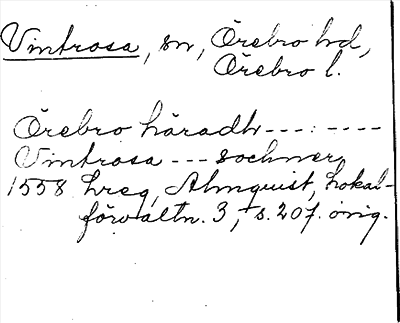 Vintrosa, sn, Örebro hd,
Örebro l.
Örebro häradh---:----
Vintrosa --- sochner
1558 hreg, Almquist, Lokal-
förvaltn. 3, s. 207. orig.